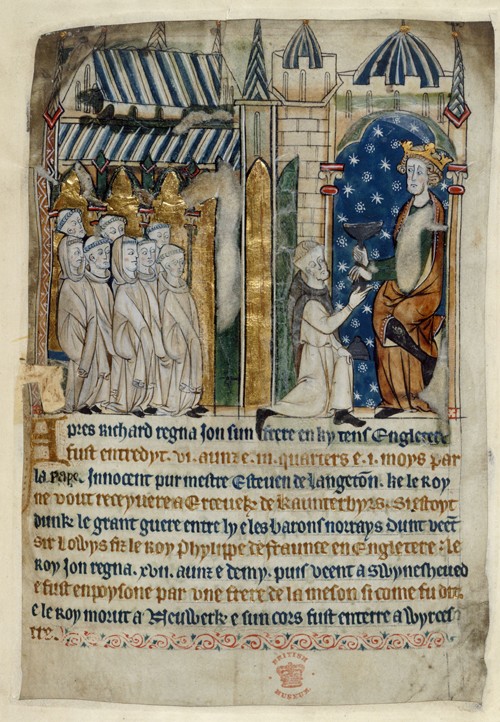 Apres Richard regna Jon sun frere en ky tens Engletere
fust entredyt . vi . aunz e . iii . moys par
la Pape . Innocent pur mestre Estevene de Langeton . ke le Roy
ne vout receyvere a Ercevek de Kaunterbyrs . Si estoyt
dunk le grant guere entre ly e les barons norrays dunt veent
sir Lowys fiz le Roy Phylippe de fraunce en Engletere . le
Roy Jon regna . xvii . aunz e demy . puis veent a Swynesheued
e fust enpoysone par une frere de la meson si come fu dit .
e le Roy morut a Neuwerk e sun cors fust enterre a Wyrces
tre .
BRITISH
MUSEUM